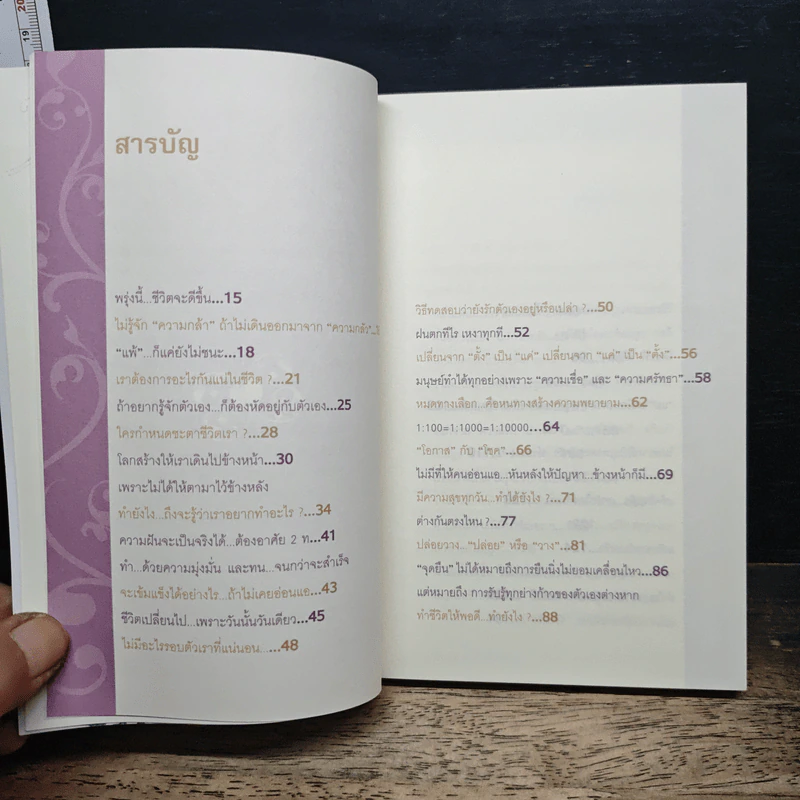 20
19
สารบัญ
พรุ่งนี้...ชีวิตจะดีขึ้น...15
ไม่รู้จัก “ความกล้า” ถ้าไม่เดินออกมาจาก “ความกลัว”...
“แพ้”...ก็แค่ยังไม่ชนะ...18
เราต้องการอะไรกันแน่ในชีวิต ?...21
ถ้าอยากรู้จักตัวเอง...ก็ต้องหัดอยู่กับตัวเอง...25
ใครกำหนดชะตาชีวิตเรา ?...28
โลกสร้างให้เราเดินไปข้างหน้า...30
เพราะไม่ได้ให้ตามาไว้ข้างหลัง
ทำยังไง...ถึงจะรู้ว่าเราอยากทำอะไร ?...34
ความฝันจะเป็นจริงได้...ต้องอาศัย 2 ท...41
ทำ...ด้วยความมุ่งมั่น และทน...จนกว่าจะสำเร็จ
จะเข้มแข็งได้อย่างไร...ถ้าไม่เคยอ่อนแอ...43
ชีวิตเปลี่ยนไป...เพราะวันนั้นวันเดียว...45
ไม่มีอะไรรอบตัวเราที่แน่นอน...48
วิธีทดสอบว่ายังรักตัวเองอยู่หรือเปล่า ?...50
ฝนตกทีไร เหงาทุกที...52
เปลี่ยนจาก “ตั้ง” เป็น “แค่” เปลี่ยนจาก “แค่” เป็น “ตั้ง”...56
มนุษย์ทำได้ทุกอย่างเพราะ “ความเชื่อ” และ “ความศรัทธา”...58
หมดทางเลือก...คือหนทางสร้างความพยายาม...62
1:100=1:1000=1:10000...64
“โอกาส” กับ “โชค”...66
ไม่มีที่ให้คนอ่อนแอ...หันหลังให้ปัญหา...ข้างหน้าก็มี...69
มีความสุขทุกวัน...ทำได้ยังไง ?...71
ต่างกันตรงไหน ?...77
ปล่อยวาง... “ปล่อย” หรือ “วาง”...81
“จุดยืน” ไม่ได้หมายถึงการยืนนิ่งไม่ยอมเคลื่อนไหว...86
แต่หมายถึง การรับรู้ทุกย่างก้าวของตัวเองต่างหาก
ทำชีวิตให้พอดี...ทำยังไง ?...88